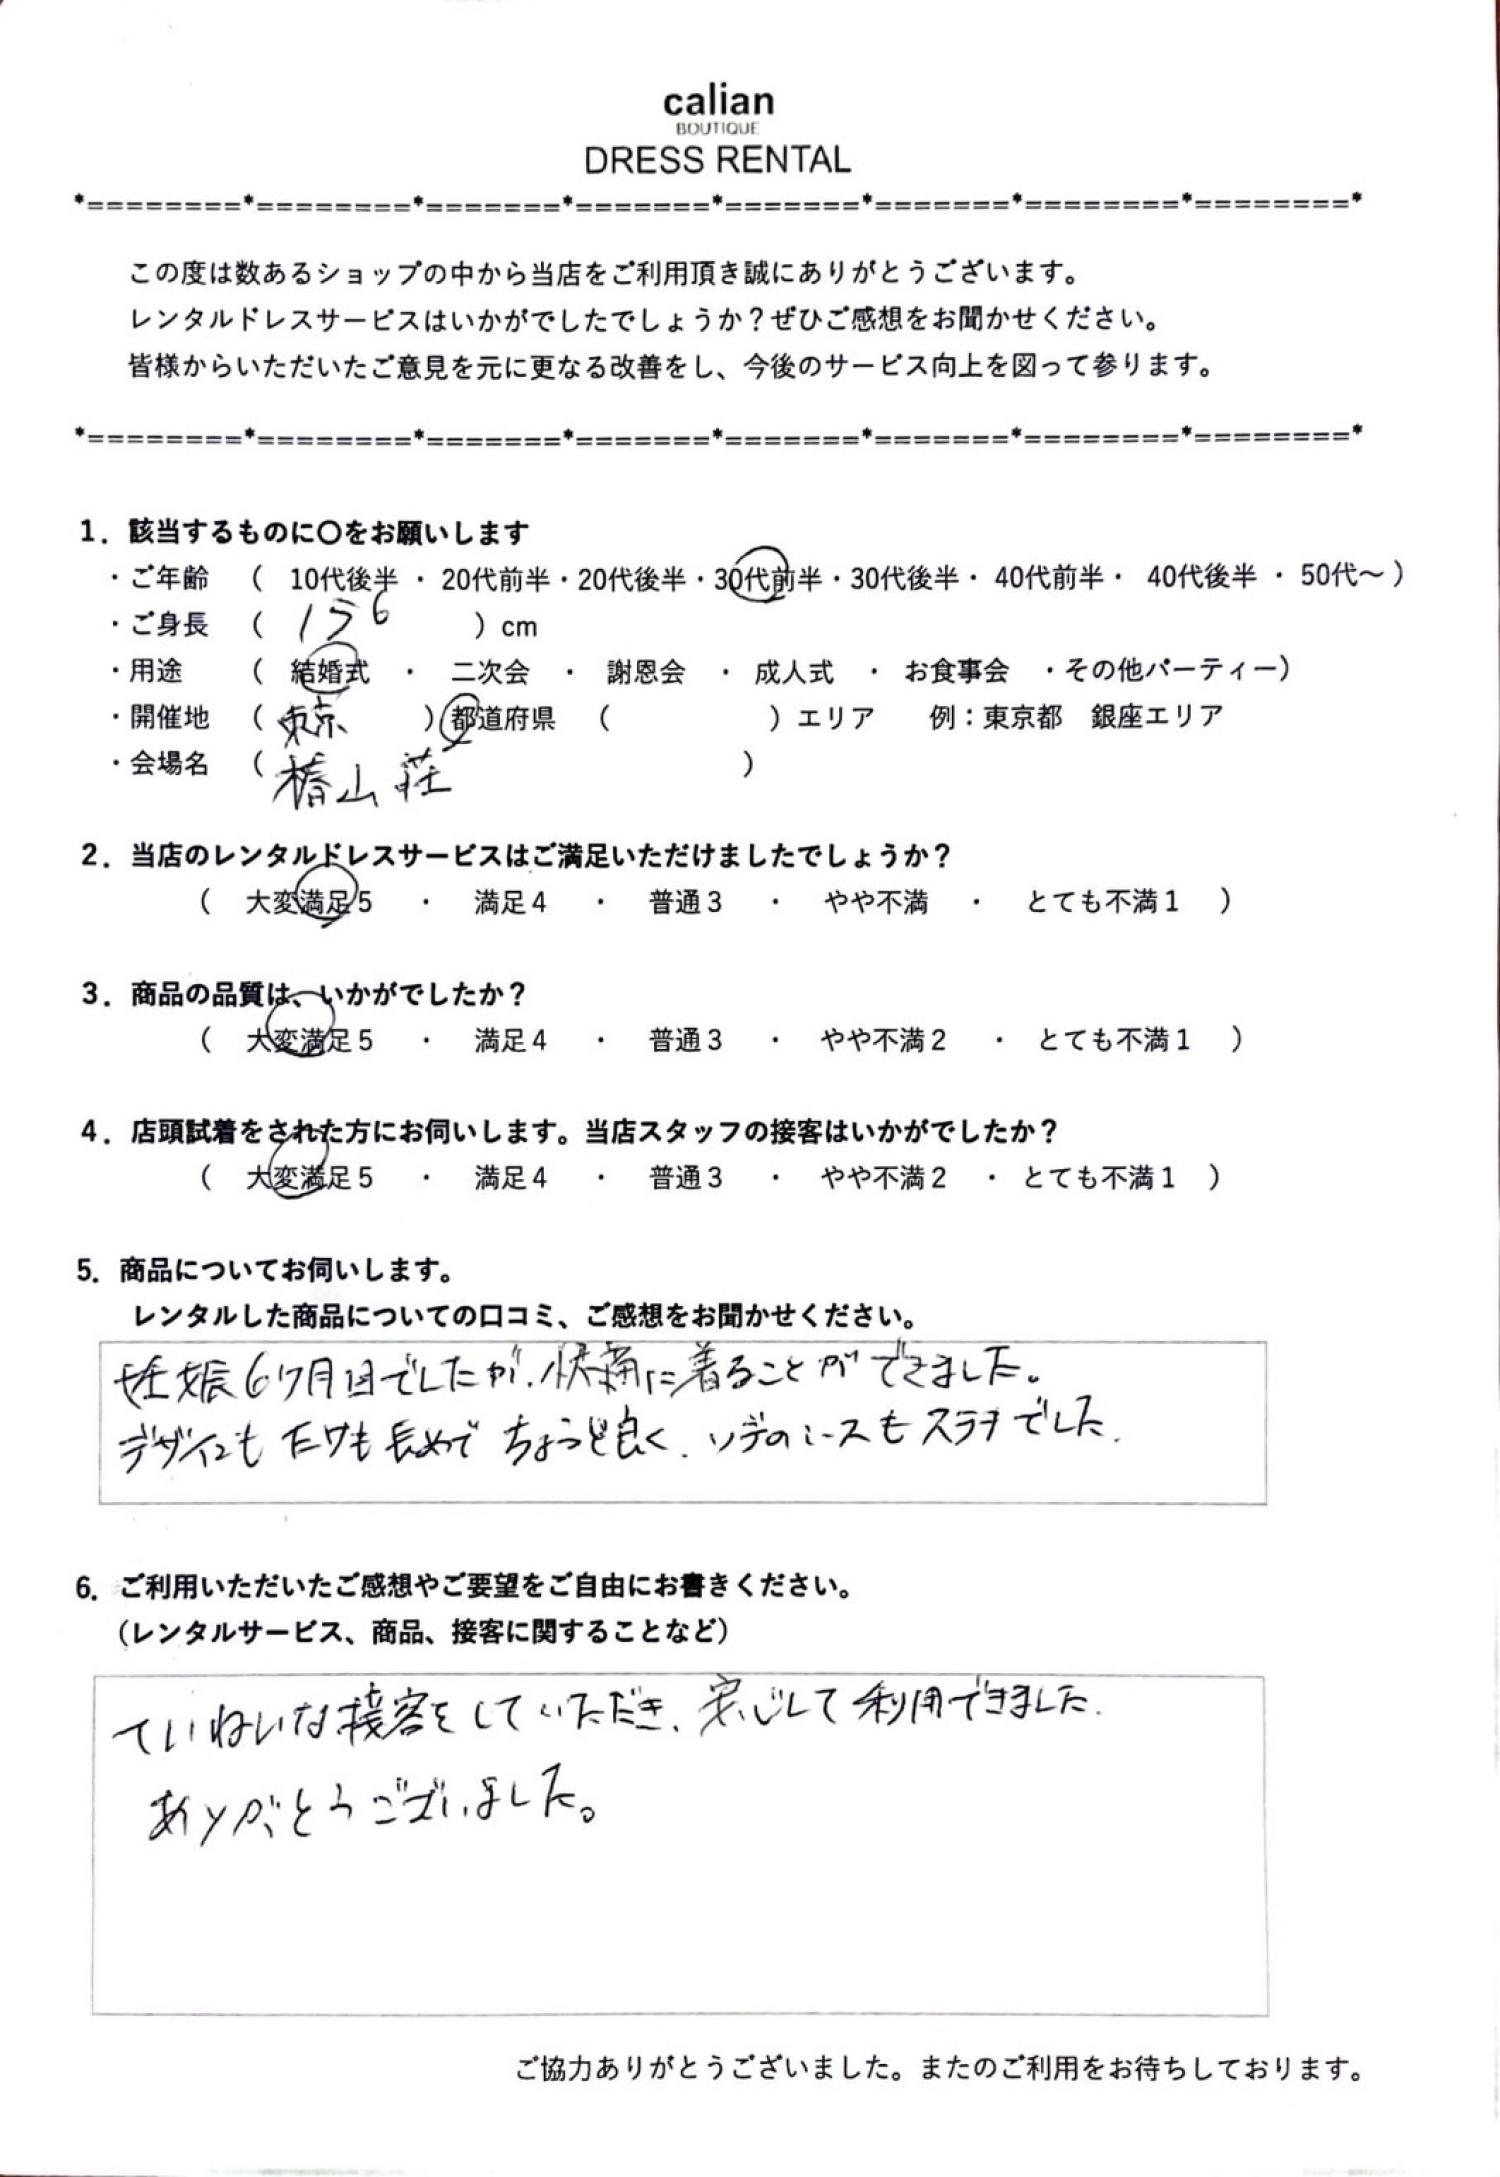 calian
BOUTIQUE
DRESS RENTAL
*========*========*=======*=======*=======*=======*========*========*
この度は数あるショップの中から当店をご利用頂き誠にありがとうございます。
レンタルドレスサービスはいかがでしたでしょうか？ぜひご感想をお聞かせください。
皆様からいただいたご意見を元に更なる改善をし、今後のサービス向上を図って参ります。
*========*========*=======*=======*=======*=======*========*========*
1. 該当するものに〇をお願いします
・ご年齢 ( 10代後半 ・ 20代前半・20代後半・30代前半・30代後半・ 40代前半・ 40代後半 ・ 50代〜 )
・ご身長 ( 156 ) cm
・用途 ( 結婚式 ・ 二次会 ・ 謝恩会 ・ 成人式 ・ お食事会 ・その他パーティー)
・開催地 ( 東京 ) 都道府県 ( ) エリア 例：東京都 銀座エリア
・会場名 ( 椿山荘 )
2. 当店のレンタルドレスサービスはご満足いただけましたでしょうか？
( 大変満足5 ・ 満足4 ・ 普通3 ・ やや不満 ・ とても不満1 )
3. 商品の品質は、いかがでしたか？
( 大変満足5 ・ 満足4 ・ 普通3 ・ やや不満2 ・ とても不満1 )
4. 店頭試着をされた方にお伺いします。当店スタッフの接客はいかがでしたか？
( 大変満足5 ・ 満足4 ・ 普通3 ・ やや不満2 ・ とても不満1 )
5. 商品についてお伺いします。
レンタルした商品についての口コミ、ご感想をお聞かせください。
妊娠6ヶ月目でしたが、快適に着ることができました。
デザインもたけも長めでちょうど良く、ソデのレースもステキでした。
6. ご利用いただいたご感想やご要望をご自由にお書きください。
(レンタルサービス、商品、接客に関することなど)
ていねいな接客をしていただき、安心して利用できました。
ありがとうございました。
ご協力ありがとうございました。またのご利用をお待ちしております。